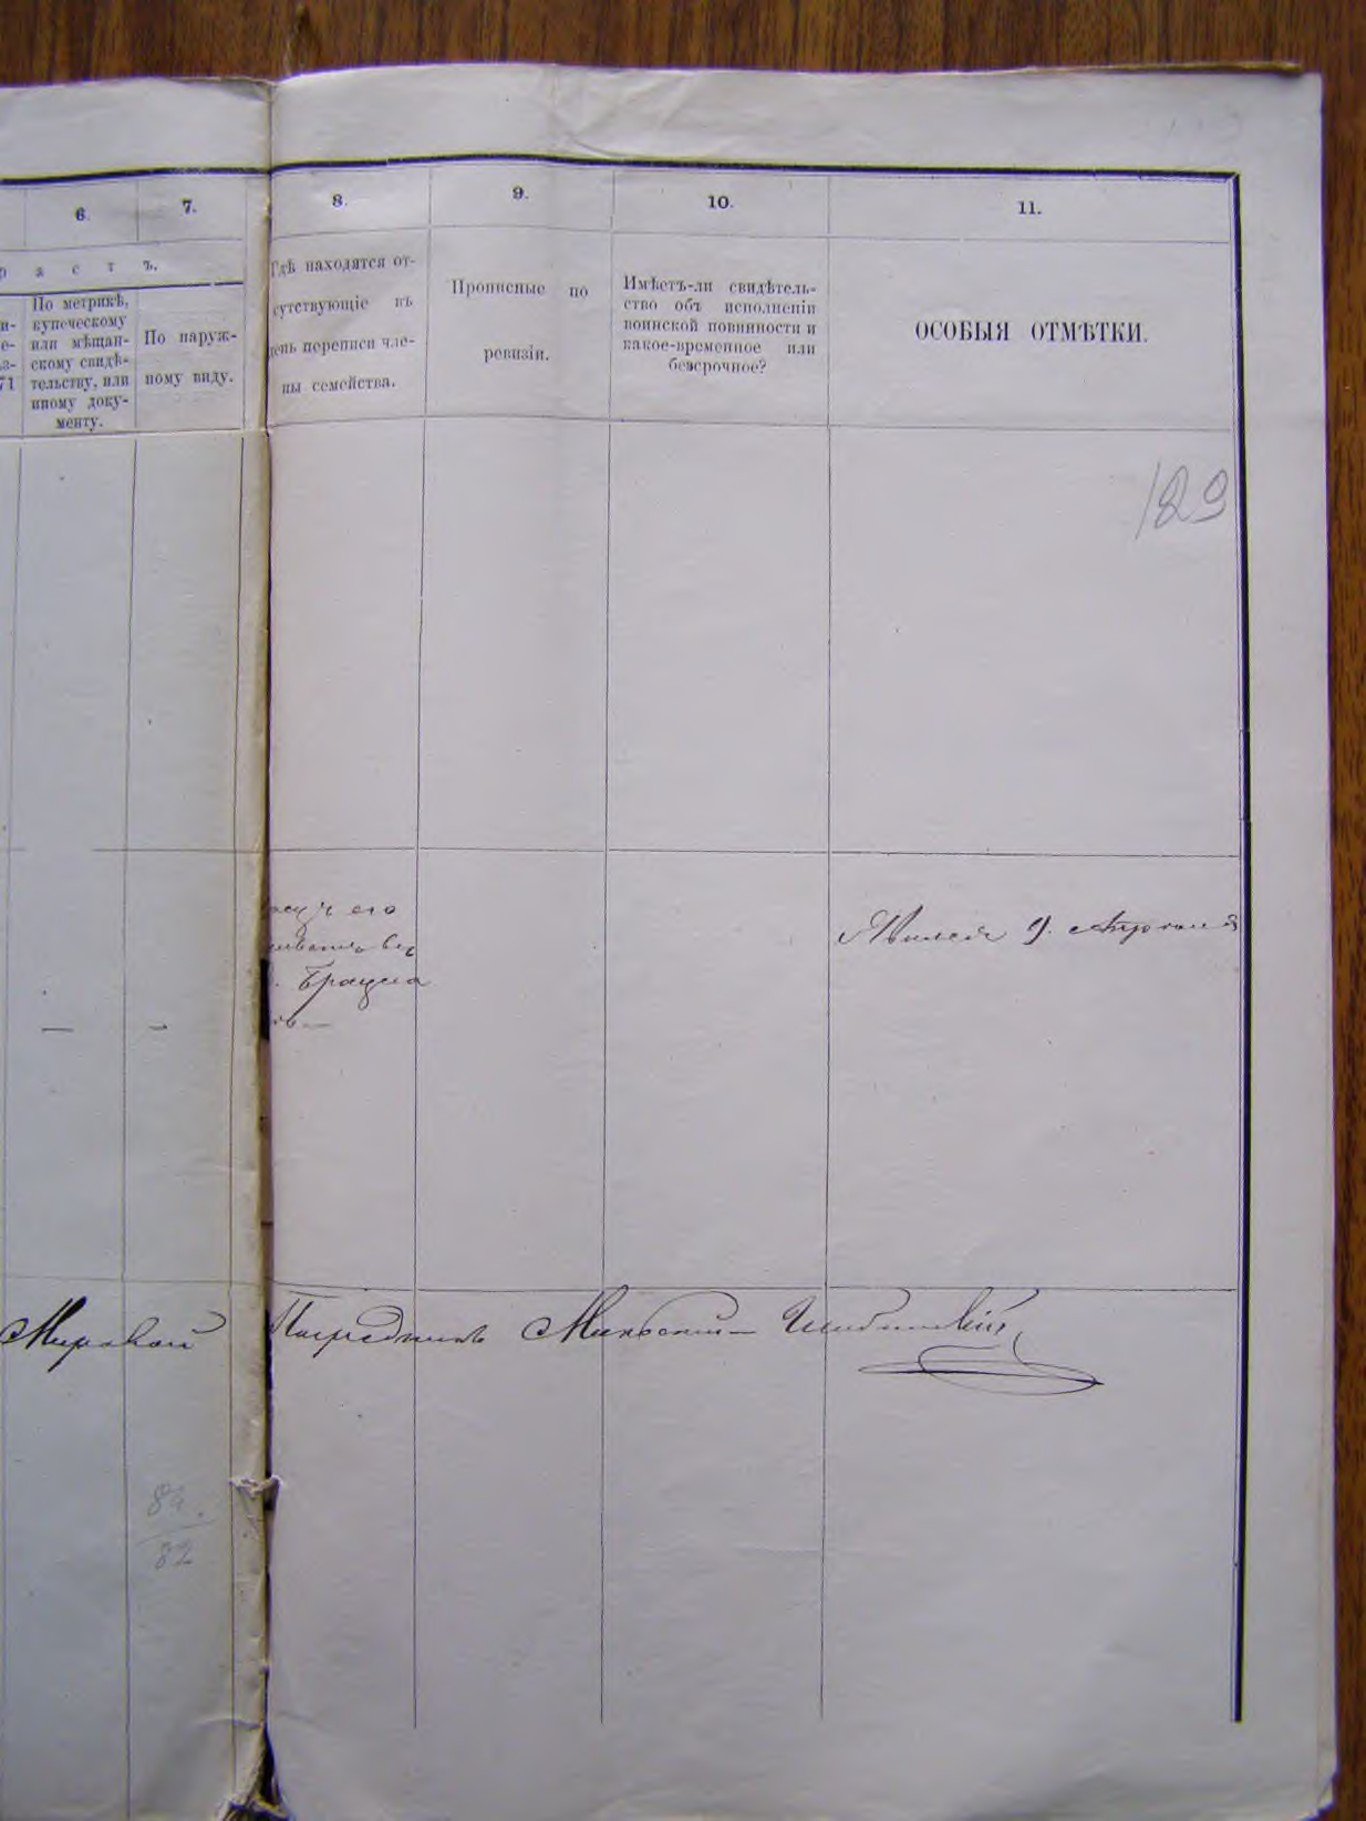 6.
7.
8.
9.
10.
11.
р а с т ъ.
По метрикѣ,
купеческому
или мѣщан-
скому свидѣ-
тельству, или
иному доку-
менту.
По наруж-
ному виду.
Гдѣ находятся от-
сутствующіе въ
день переписи чле-
ны семейства.
Прописные по
ревизіи.
Имѣетъ-ли свидѣтель-
ство объ исполненіи
воинской повинности и
какое-временное или
безсрочное?
ОСОБЫЯ ОТМѢТКИ.
и-
е-
з-
71
129
его
Явился 9. Апреля
—
—
Мировой Посредникъ
84.
82